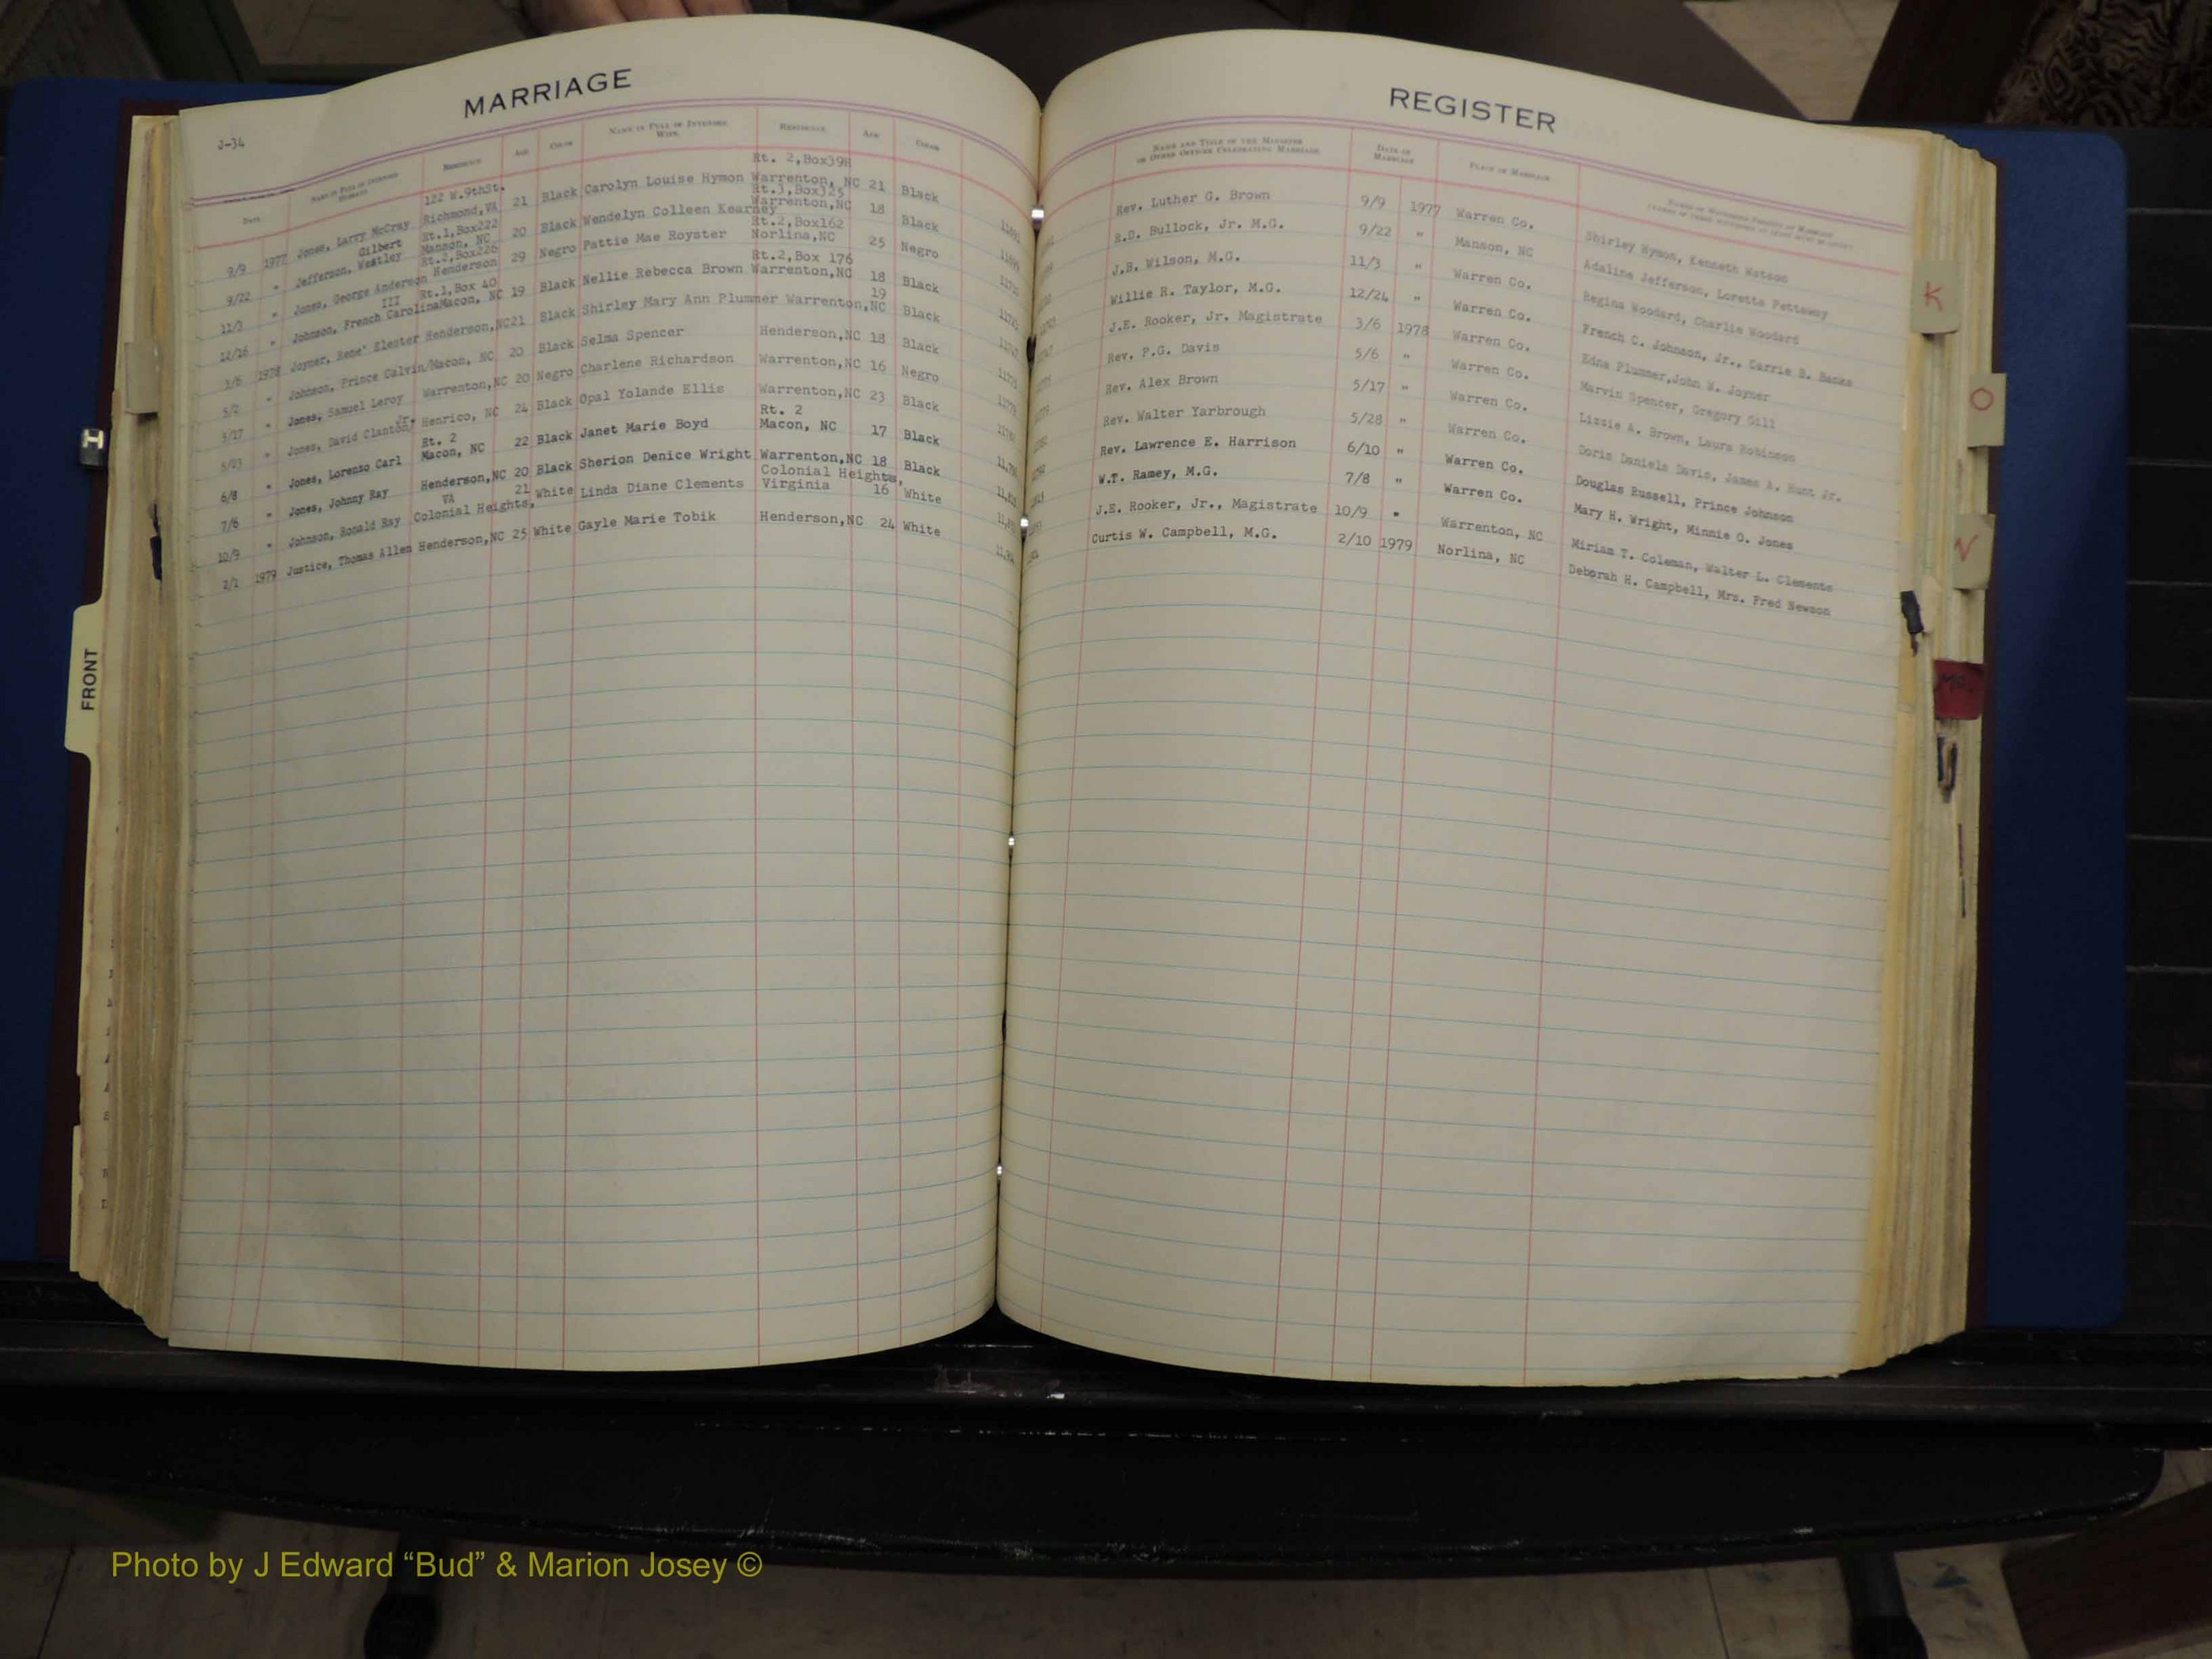 MARRIAGE
J-34
DATE NAME IN FULL OF INTENDED HUSBAND RESIDENCE AGE COLOR NAME IN FULL OF INTENDED WIFE RESIDENCE AGE COLOR
9/9 1977 Jones, Larry McCray 122 W.9thSt. Richmond,VA 21 Black Carolyn Louise Hymon Rt. 2,Box398 Warrenton, NC 21 Black
9/22 " Jefferson, Westley Gilbert Rt.1,Box222 Manson, NC 20 Black Wendelyn Colleen Kearney Rt.3,Box325 Warrenton,NC 18 Black
11/3 " Jones, George Anderson III Rt.2,Box226 Henderson 29 Negro Pattie Mae Royster Rt.2,Box162 Norlina,NC 25 Negro
12/16 " Johnson, French Carolina Rt.1,Box 40 Macon, NC 19 Black Nellie Rebecca Brown Rt.2,Box 176 Warrenton,NC 18 Black
3/6 1978 Joyner, Rene' Elester Henderson,NC21 Black Shirley Mary Ann Plummer Warrenton,NC 19 Black
5/2 " Johnson, Prince Calvin/Macon, NC 20 Black Selma Spencer Henderson,NC 18 Black
5/17 " Jones, Samuel Leroy Warrenton,NC 20 Negro Charlene Richardson Warrenton,NC 16 Negro
5/23 " Jones, David Clanton, Jr. Henrico, NC 24 Black Opal Yolande Ellis Warrenton,NC 23 Black
6/8 " Jones, Lorenso Carl Rt. 2 Macon, NC 22 Black Janet Marie Boyd Rt. 2 Macon, NC 17 Black
7/6 " Jones, Johnny Ray Henderson,NC 20 Black Sherion Denice Wright Warrenton,NC 18 Black
10/9 " Johnson, Ronald Ray Colonial Heights, VA 21 White Linda Diane Clements Colonial Heights, Virginia 16 White
2/1 1979 Justice, Thomas Allen Henderson,NC 25 White Gayle Marie Tobik Henderson,NC 24 White
REGISTER
NAME AND TITLE OF THE MINISTER OR OTHER OFFICER CELEBRATING MARRIAGE DATE OF MARRIAGE PLACE OF MARRIAGE
Rev. Luther G. Brown 9/9 1977 Warren Co. Shirley Hymon, Kenneth Watson
R.D. Bullock, Jr. M.G. 9/22 " Manson, NC Adaline Jefferson, Loretta Pettaway
J.B. Wilson, M.G. 11/3 " Warren Co. Regina Woodard, Charlie Woodard
Willie R. Taylor, M.G. 12/24 " Warren Co. French C. Johnson, Jr., Carrie B. Banks
J.E. Rooker, Jr. Magistrate 3/6 1978 Warren Co. Edna Plummer,John W. Joyner
Rev. P.G. Davis 5/6 " Warren Co. Marvin Spencer, Gregory Gill
Rev. Alex Brown 5/17 " Warren Co. Lizzie A. Brown, Laura Robinson
Rev. Walter Yarbrough 5/28 " Warren Co. Doris Daniels Davis, James A. Hunt Jr.
Rev. Lawrence E. Harrison 6/10 " Warren Co. Douglas Russell, Prince Johnson
W.T. Ramey, M.G. 7/8 " Warren Co. Mary H. Wright, Minnie O. Jones
J.E. Rooker, Jr., Magistrate 10/9 " Warrenton, NC Miriam T. Coleman, Walter L. Clements
Curtis W. Campbell, M.G. 2/10 1979 Norlina, NC Deborah H. Campbell, Mrs. Fred Newson
K
O
FRONT
Photo by J Edward “Bud” & Marion Josey ©